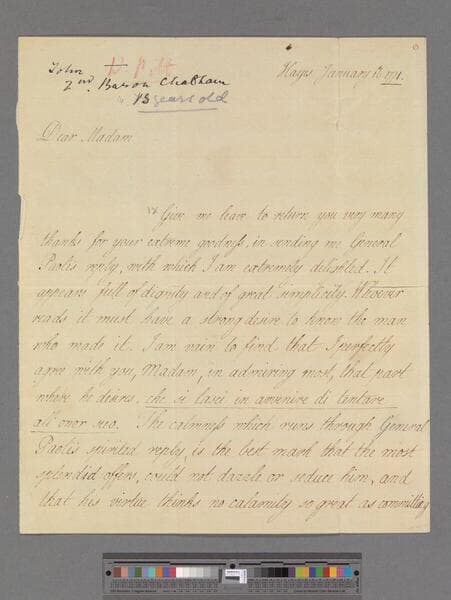 John
2nd. Baron Chatham
13 years old
Hayes January 1771.
Dear Madam
Give me leave to return you very many
thanks for your extreme goodness, in sending me General
Paoli's reply, with which I am extremely delighted. It
appears full of dignity and of great simplicity. Whoever
reads it must have a strong desire to know the man
who made it. I am vain to find that I perfectly
agree with you, Madam, in admiring most, that part
where he desires, che si lasci in avvenire di tentare
all' onor suo. The calmness which runs through General
Paoli's spirited reply, is the best mark that the most
splendid offers, could not dazzle or seduce him, and
that his virtue thinks no calamity so great as committing